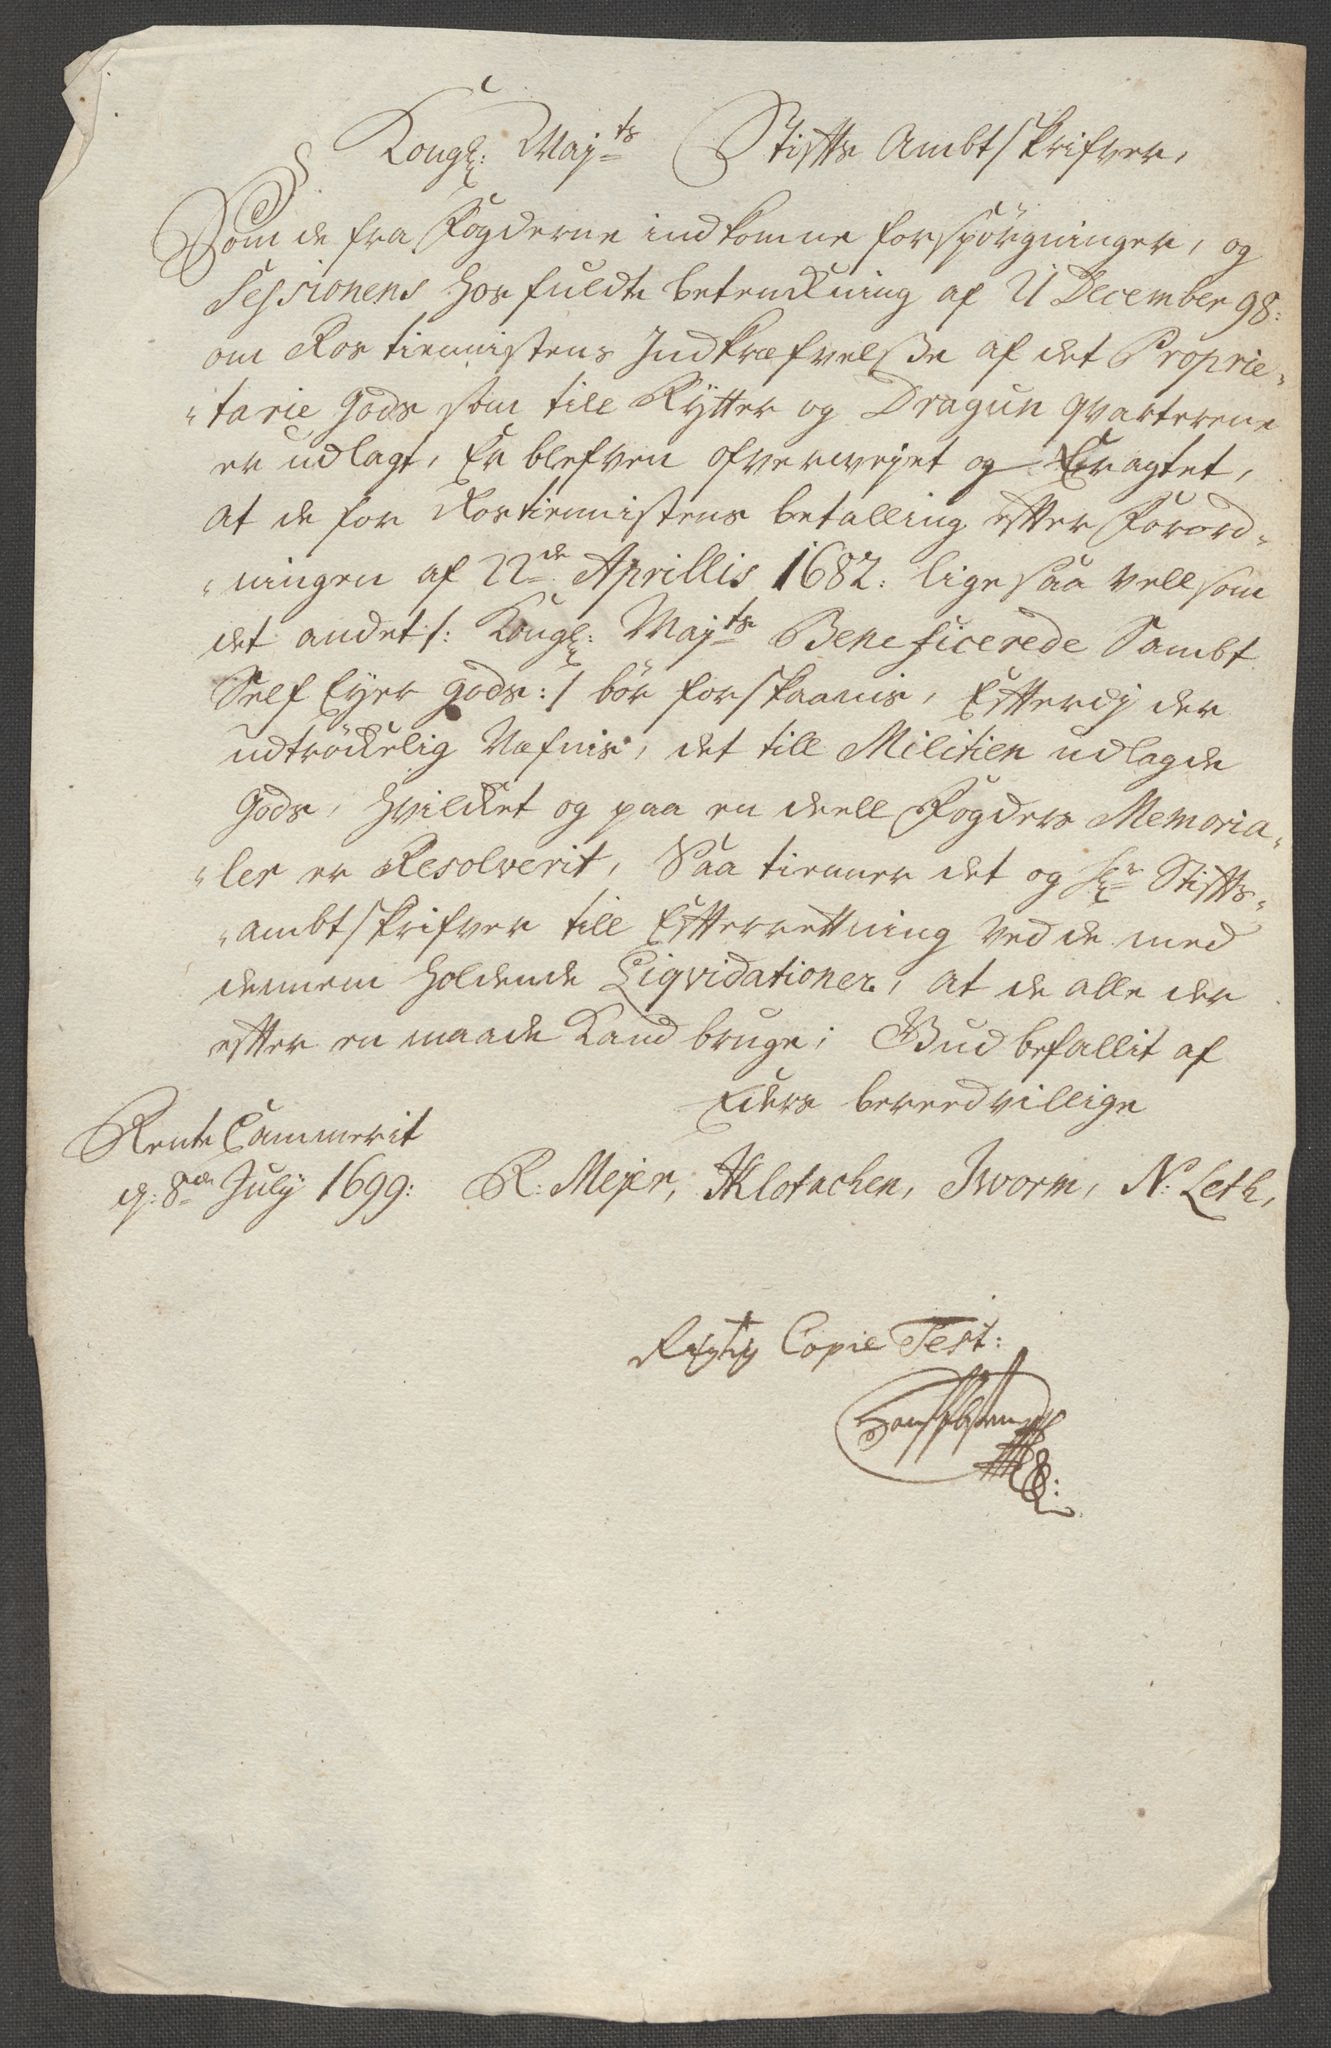 Kongl: Maj:ts Stiffts Ambtskrifver,
Som de fra Fogderne indkomne forspörgninger, og
Sessionens hosfuldte betenckning af 21 December 98:
om Rostiennistens Indkræfvelsse af det Proprie-
-tarie Gods som till Rytter og Dragun qvarterene
er udlagt, Er blefven ofverwejet og Eragtet,
at de for Rostiennistens betalling effter Forord-
-ningen af 22de Aprillis 1682: lige saa vell som
det andet /: Kongl: Maj:ts Beneficerede Sambt
Self Eyer gods :/ bör forskaanis, Efterdj der
udtröckelig Næfnis, det till Militien udlagde
Gods, hvilcket og paa en deell Fogders Memoria-
-ler er Resolverit, Saa tienner det og Hr Stiffts-
-ambtskrifver till Effterrettning ved de med
dennem holdende Liqvidationer, at de alle der
effter en maade kand bruge; Gud befallit af
Eders bereedvillige
Rente Cammerit
d: 8de July 1699: R: Mejer, HKlotachen, Jworm, N: Leth,
Rigtig Copie Test: